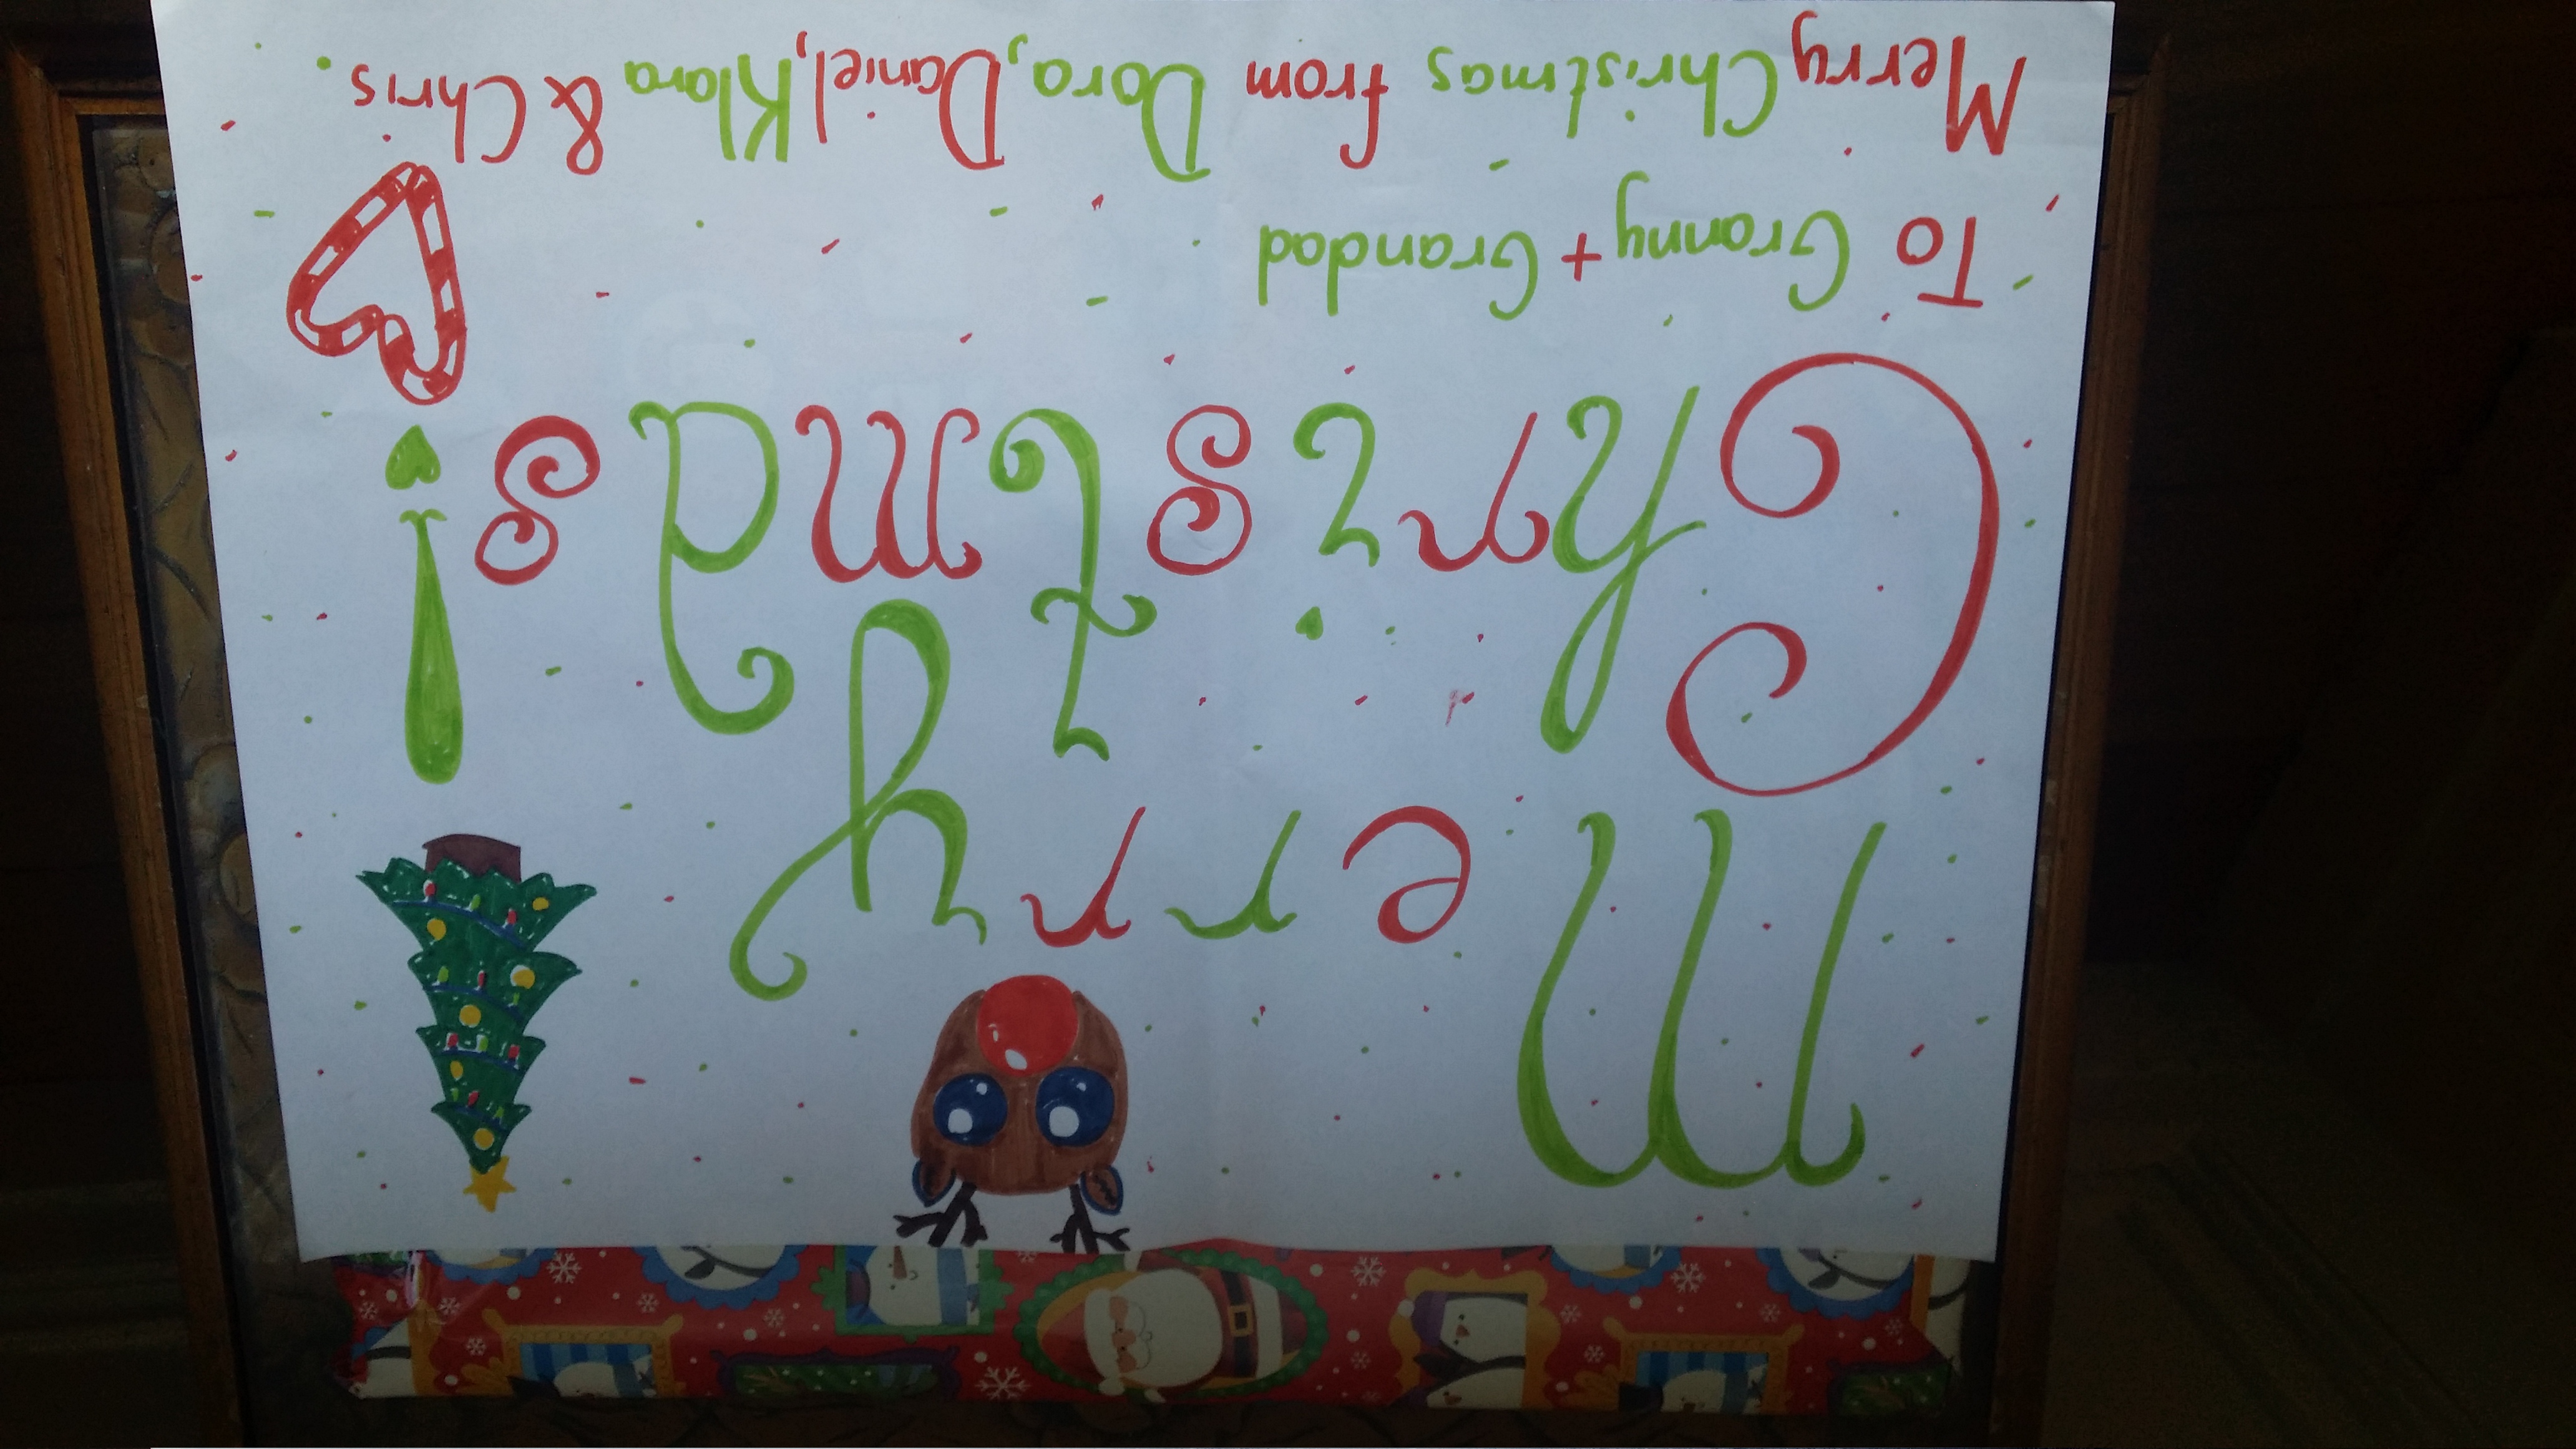 Merry
Christmas!
To Granny + Grandad
Merry Christmas from Dora, Daniel, Klara & Chris.